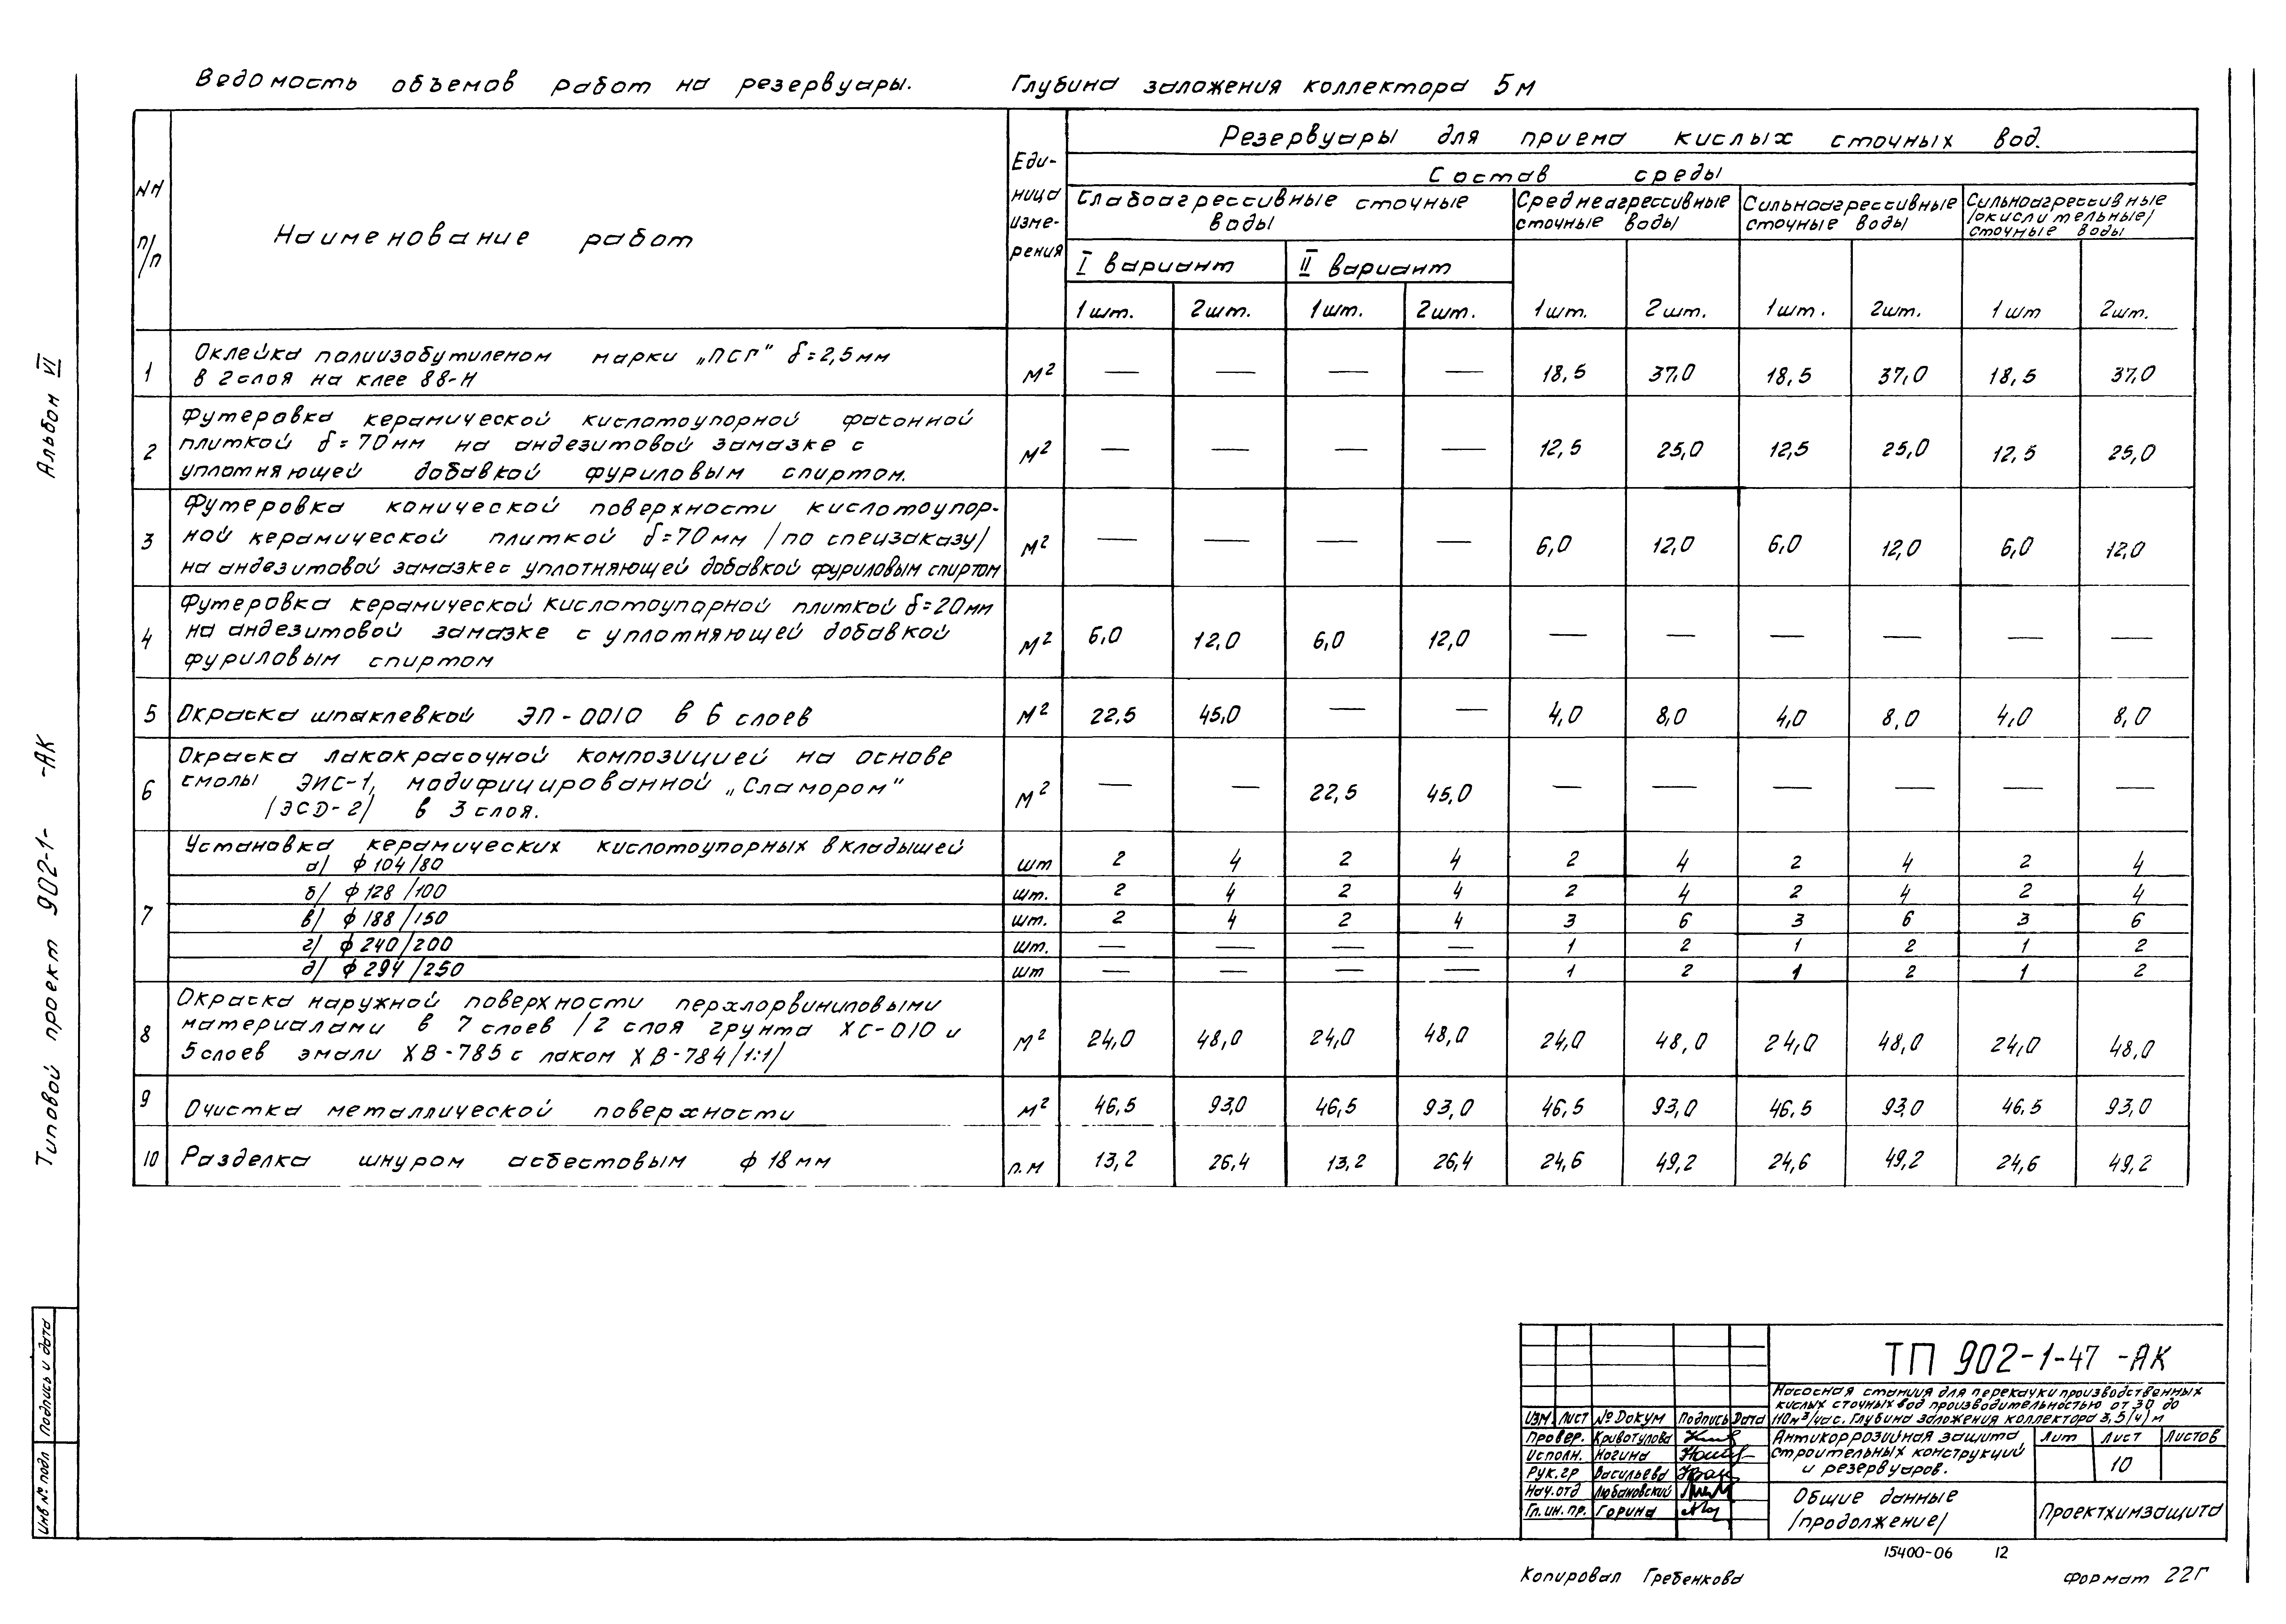 Ведомость объемов работ на резервуары. Глубина заложения коллектора 5м
NN п/п
Наименование работ
Еди-
ница
изме-
рения
Резервуары для приема кислых сточных вод.
Состав среды
Слабоагрессивные сточные воды
Среднеагрессивные сточные воды
Сильноагрессивные сточные воды
Сильноагрессивные /окислительные/ сточные воды
I вариант II вариант
1шт. 2шт. 1шт. 2шт. 1шт. 2шт. 1шт. 2шт. 1шт 2шт.
1 Оклейка полиизобутиленом марки „ПСГ" δ=2,5мм
в 2слоя на клее 88-Н м² — — — — 18,5 37,0 18,5 37,0 18,5 37,0
2 Футеровка керамической кислотоупорной фасонной
плиткой δ=70мм на андезитовой замазке с
уплотняющей добавкой фуриловым спиртом. м² — — — — 12,5 25,0 12,5 25,0 12,5 25,0
3 Футеровка конической поверхности кислотоупор-
ной керамической плиткой δ=70мм /по спецзаказу/
на андезитовой замазке с уплотняющей добавкой фуриловым спиртом м² — — — — 6,0 12,0 6,0 12,0 6,0 12,0
4 Футеровка керамической кислотоупорной плиткой δ=20мм
на андезитовой замазке с уплотняющей добавкой
фуриловым спиртом м² 6,0 12,0 6,0 12,0 — — — — — —
5 Окраска шпаклевкой ЭП-0010 в 6 слоев м² 22,5 45,0 — — 4,0 8,0 4,0 8,0 4,0 8,0
6 Окраска лакокрасочной композицией на основе
смолы ЭИС-1, модифицированной „Сламором"
/ЭСД-2/ в 3 слоя. м² — — 22,5 45,0 — — — — — —
7 Установка керамических кислотоупорных вкладышей
а/ ф104/80 шт 2 4 2 4 2 4 2 4 2 4
б/ ф128/100 шт. 2 4 2 4 2 4 2 4 2 4
в/ ф188/150 шт. 2 4 2 4 3 6 3 6 3 6
г/ ф240/200 шт. — — — — 1 2 1 2 1 2
д/ ф294/250 шт — — — — 1 2 1 2 1 2
8 Окраска наружной поверхности перхлорвиниловыми
материалами в 7 слоев /2 слоя грунта ХС-010 и
5слоев эмали ХВ-785 с лаком ХВ-784/1:1/ м² 24,0 48,0 24,0 48,0 24,0 48,0 24,0 48,0 24,0 48,0
9 Очистка металлической поверхности м² 46,5 93,0 46,5 93,0 46,5 93,0 46,5 93,0 46,5 93,0
10 Разделка шнуром асбестовым ф18мм п.м 13,2 26,4 13,2 26,4 24,6 49,2 24,6 49,2 24,6 49,2
Альбом VI
Типовой проект 902-1- -АК
Подпись и дата
Инв № подл
ТП 902-1-47 -АК
Насосная станция для перекачки производственных
кислых сточных вод производительностью от 30 до
110м³/час. Глубина заложения коллектора 3,5/4/ м
Изм. Лист № Докум Подпись Дата
Провер. Кривотулова
Исполн. Ногина
Рук.гр Васильева
Нач.отд Любановский
Гл.ин.пр. Горина
Антикоррозийная защита
строительных конструкций
и резервуаров.
Лит Лист Листов
10
Общие данные
/продолжение/
Проектхимзащита
15400-06 12
Копировал Гребенкова Формат 22Г